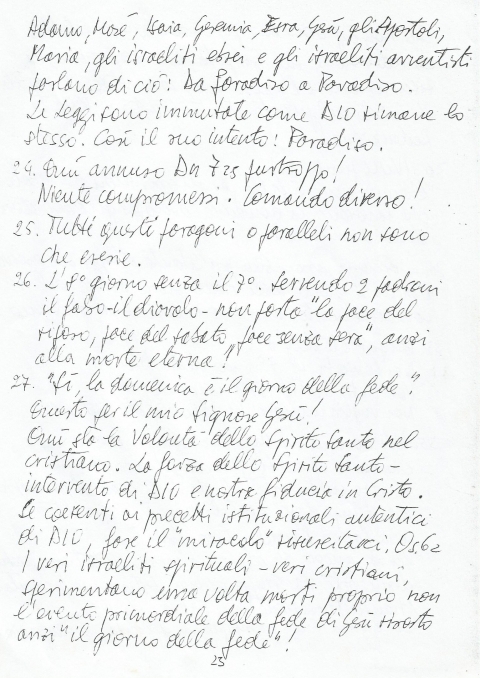 Adamo, Mosé, Isaia, Geremia, Esra, Gesù, gli Apostoli,
Maria, gli israeliti ebrei e gli israeliti avventisti
parlano di ciò! Da Paradiso a Paradiso.
Le Leggi sono immutate come DIO rimane lo
stesso. Così il suo intento: Paradiso.
24. Qui annuso Dn 7 25 purtroppo!
Niente compromessi. Comando diverso!
25. Tutti questi paragoni o paralleli non sono
che eresie.
26. L'8° giorno senza il 7°. servendo 2 padroni
il falso-il diavolo- non porta "la pace del
riposo, pace del sabato, pace senza sera", anzi
alla morte eterna!
27. "Sì, la domenica è il giorno della fede".
Questo per il mio Signore Gesù!
Qui stà la Volontà dello Spirito Santo nel
cristiano. La forza dello Spirito Santo-
intervento di DIO e nostra fiducia in Cristo.
Se coerenti ai precetti istituzionali autentici
di DIO, fare il "miracolo" risuscitarci, Os 6 2
I veri israeliti spirituali - veri cristiani,
sperimentano una volta morti proprio non
l'evento primordiale della fede di Gesù risorto
anzi "il giorno della fede"!
23